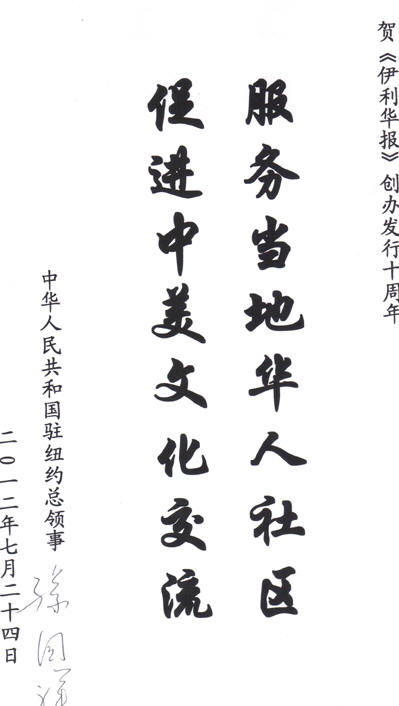 贺《伊利华报》创办发行十周年
服务当地华人社区
促进中美文化交流
中华人民共和国驻纽约总领事
孙国祥
二〇一二年七月二十四日